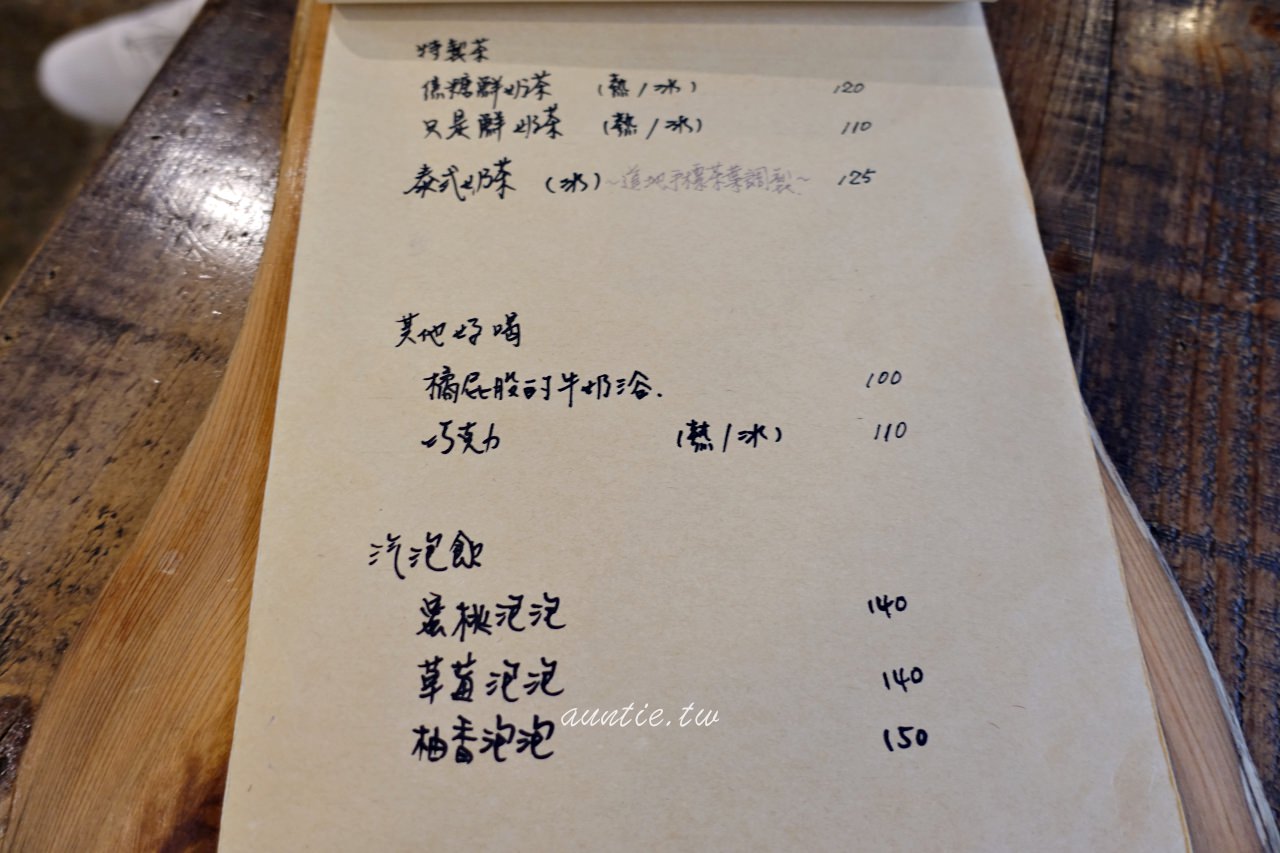 特製茶
焦糖鮮奶茶 (熱/冰) 120
只是鮮奶茶 (熱/冰) 110
泰式奶茶 (冰) ~道地手標茶葉調製~ 125
其他好喝
橘屁股的牛奶浴. 100
巧克力 (熱/冰) 110
汽泡飲
蜜桃泡泡 140
草莓泡泡 140
auntie.tw
柚香泡泡 150